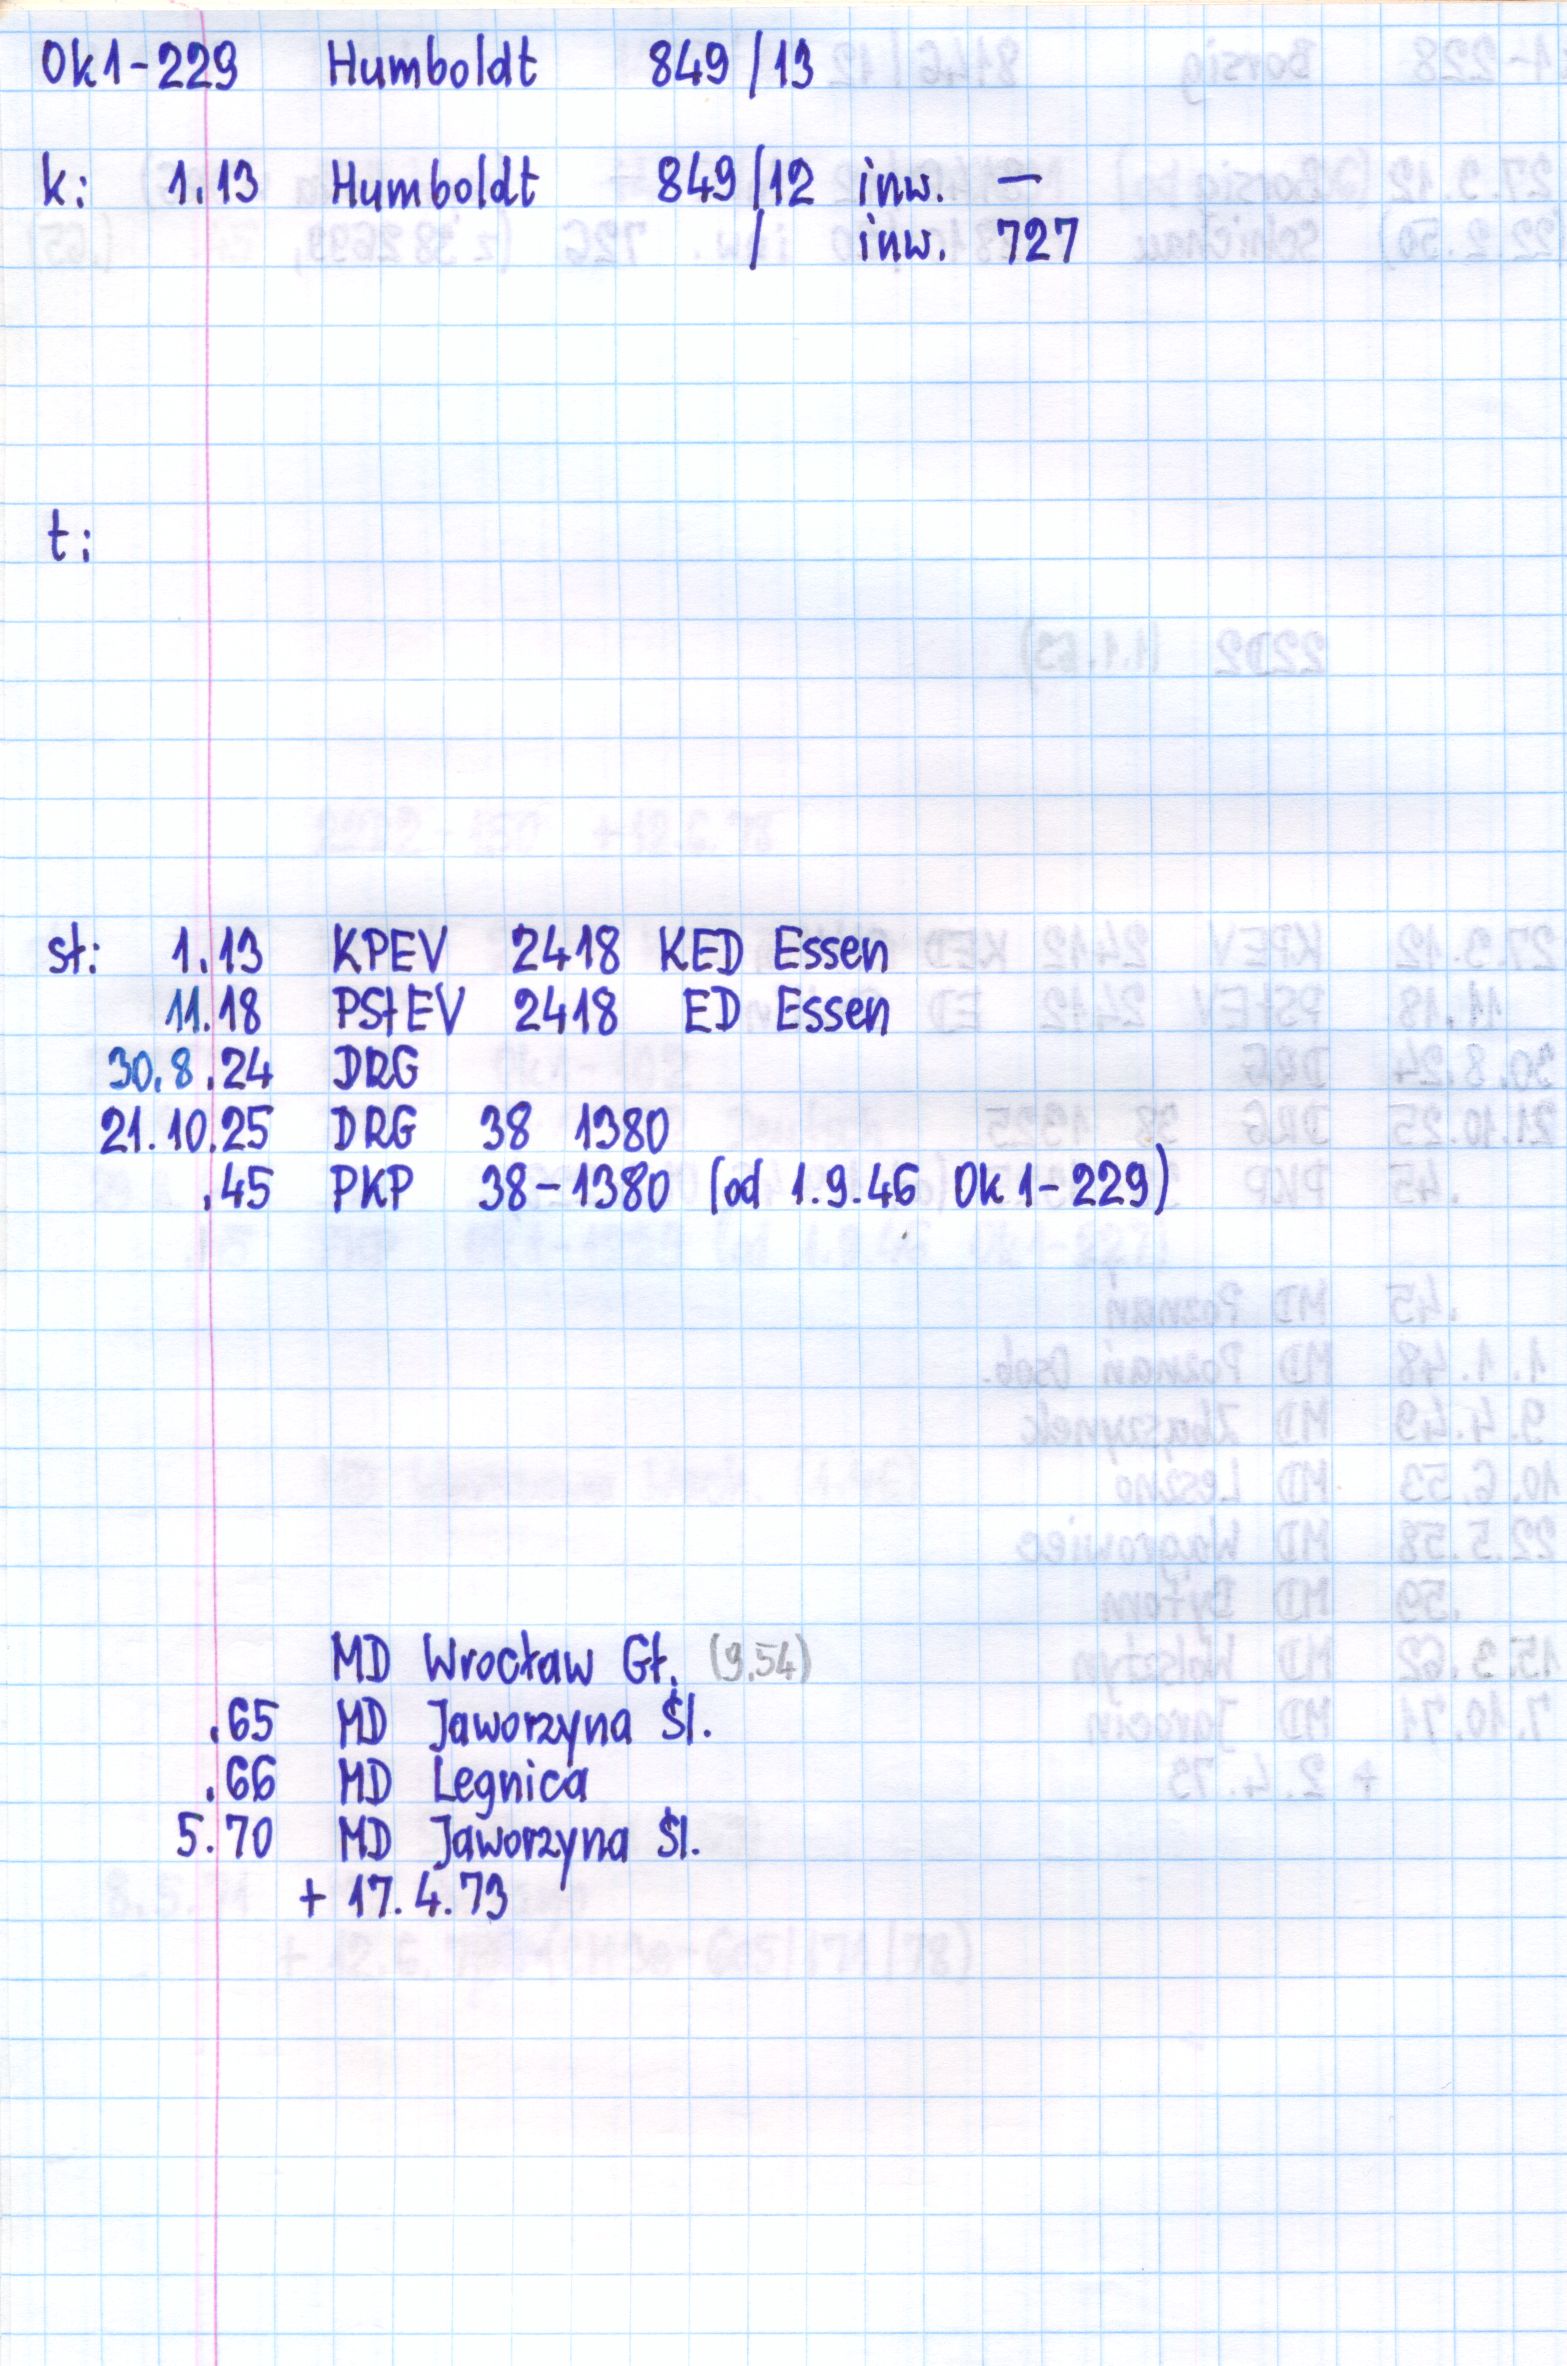 Ok1-229 Humboldt 849/13
k: 1.13 Humboldt 849/12 inw. —
/ inw. 727
t:
st: 1.13 KPEV 2418 KED Essen
11.18 PStEV 2418 ED Essen
30.8.24 DRG
21.10.25 DRG 38 1380
.45 PKP 38-1380 (od 1.9.46 Ok1-229)
MD Wrocław Gł. (9.54)
.65 MD Jaworzyna Śl.
.66 MD Legnica
5.70 MD Jaworzyna Śl.
+ 17.4.73